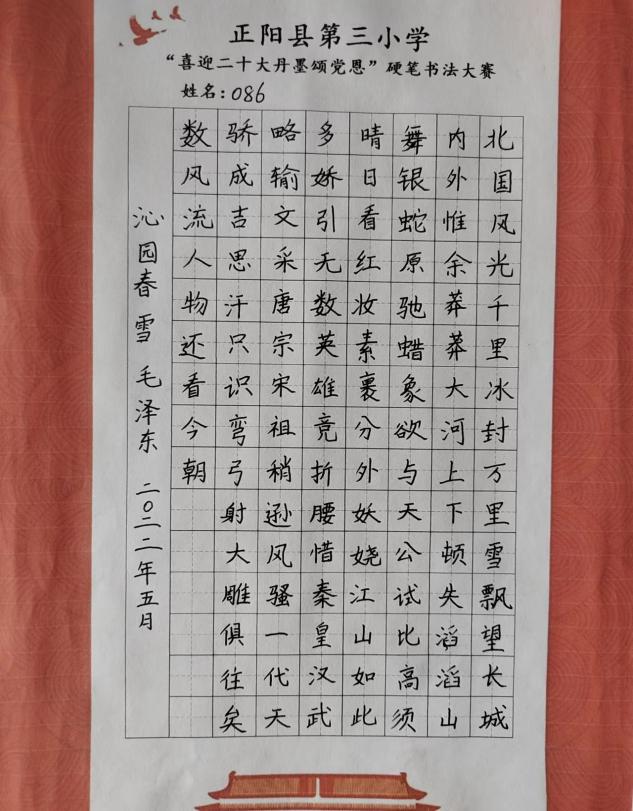 正阳县第三小学
“喜迎二十大丹墨颂党恩”硬笔书法大赛
姓名:086
北国风光千里冰封万里雪飘望长城
内外惟余莽莽大河上下顿失滔滔山
舞银蛇原驰蜡象欲与天公试比高须
晴日看红妆素裹分外妖娆江山如此
多娇引无数英雄竞折腰惜秦皇汉武
略输文采唐宗宋祖稍逊风骚一代天
骄成吉思汗只识弯弓射大雕俱往矣
数风流人物还看今朝
沁园春 雪 毛泽东 二〇二二年五月